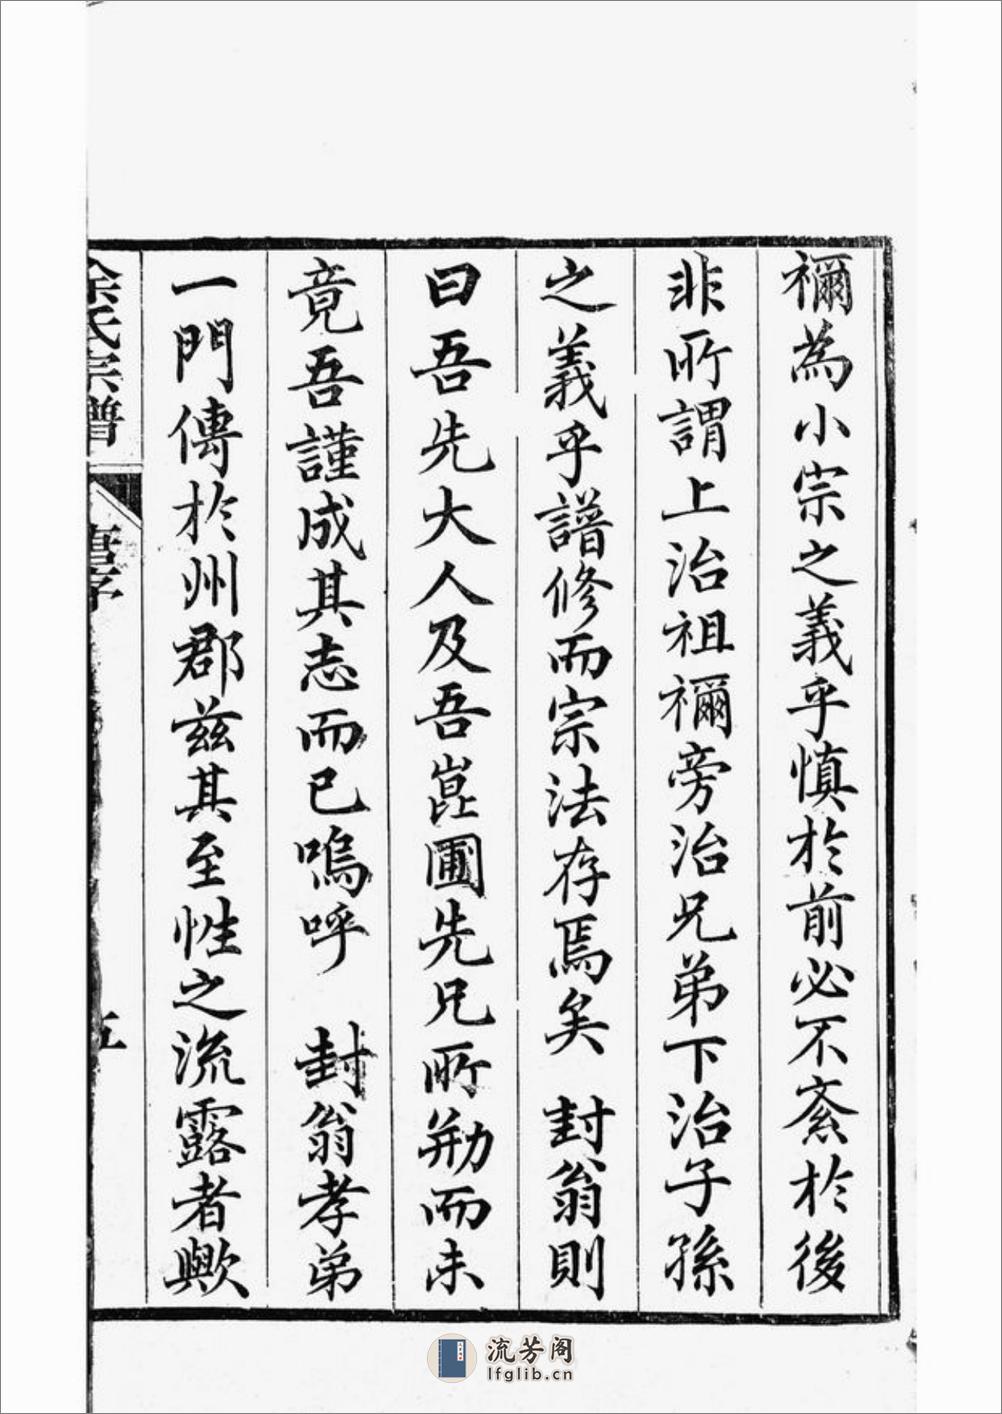 禰為小宗之義乎慎於前必不紊於後
非所謂上治祖禰旁治兄弟下治子孫
之義乎譜修而宗法存焉矣　封翁則
曰吾先大人及吾崑圃先兄所剏而未
竟吾謹成其志而已嗚呼　封翁孝弟
一門傳於州郡茲其至性之流露者歟
氏宗譜
序
五
流芳阁
lfglib.cn